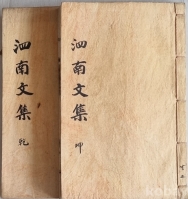 泗南文集
乾
泗南文集
坤